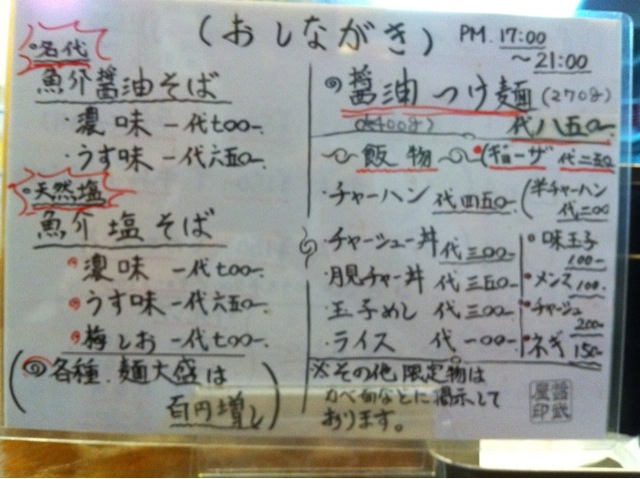 (おしながき)
PM. 17:00
～21:00
名代
魚介醤油そば
・濃味 一代七〇〇
・うす味 一代六五〇
天然塩
魚介塩そば
濃味 一代七〇〇
うす味 一代六五〇
梅しお 一代七〇〇
(各種.麺大盛は
百円増し)
醤油つけ麺 (270g)
代八五〇
飯物
ギョーザ 代二五〇
・チャーハン 代四五〇
(半チャーハン
代二〇〇
・チャーシュー丼 代三〇〇
・月見チャー丼 代三五〇
・玉子めし 代三〇〇
・ライス 代一〇〇
味玉子
100
メンマ 100
チャーシュ
200
ネギ 150
※その他限定物は
カベ面などに掲示して
おります。